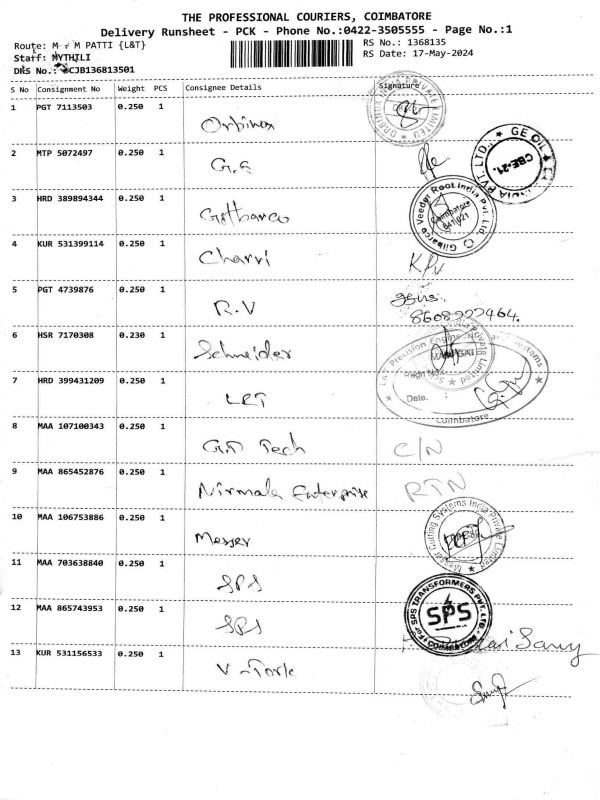 THE PROFESSIONAL COURIERS, COIMBATORE
Delivery Runsheet - PCK - Phone No.:0422-3505555 - Page No.:1
Route: M M PATTI {L&T}
RS No.: 1368135
Staff: MYTHILI
RS Date: 17-May-2024
DRS No.: CJB136813501
S No Consignment No Weight PCS Consignee Details Signature
1 PGT 7113503 0.250 1 Orbinox
2 MTP 5072497 0.250 1 G.E
GE OIL &
INDIA PVT. LTD.,
CBE-21.
3 HRD 389894344 0.250 1 Gilbarco
Gilbarco Veeder Root India Pvt. Ltd.
Coimbatore
641 021
4 KUR 531399114 0.250 1 Charvi
5 PGT 4739876 0.250 1 R.V
8608222464.
6 HSR 7170308 0.230 1 Schneider
Private Limited
7 HRD 399431209 0.250 1 L&T
L&T Precision Engineering and Systems
Regn No.
Date.
Coimbatore
8 MAA 107100343 0.250 1 G.D Tech C/N
9 MAA 865452876 0.250 1 Nirmala Enterprise RTN
10 MAA 106753886 0.250 1 Messer
Messer Cutting Systems India Private Limited
11 MAA 703638840 0.250 1 SPS
12 MAA 865743953 0.250 1 SPS
For SPS TRANSFORMERS PVT. LTD.
SPS
COIMBATORE
13 KUR 531156533 0.250 1 V-Tork